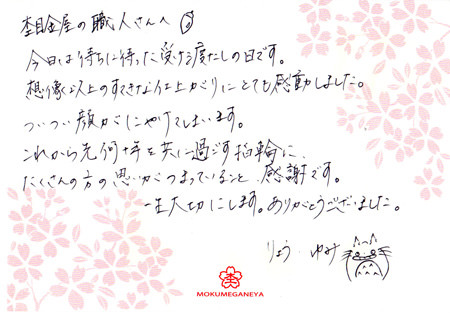 杢目金屋の職人さんへ
今日は待ちに待った受け渡しの日です。
想像以上のすてきな仕上がりにとても感動しました。
ついつい顔がにやけてしまいます。
これから先何十年と共に過ごす指輪に、
たくさんの方の思いがつまっていること、感謝です。
一生大切にします。ありがとうございました。
りょう・ゆみ
MOKUMEGANEYA